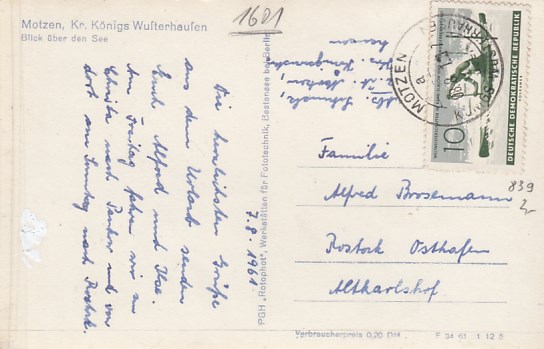 Motzen, Kr. Königs Wusterhausen
Blick über den See
1601
Die herzlichsten Grüße
aus dem Urlaub senden
Euch Alfred und Ilse.
Am Freitag fahren wir zu
Christa nach Pankow und von
dort am Sonntag nach Rostock.
7.8.1961
PGH „Rotophot", Werkstätten für Fototechnik, Bestensee bei Berlin
Familie
Alfred Brosemann
Rostock Osthafen
Altkarlshof
839
2,-
MOTZEN
a
10
DEUTSCHE DEMOKRATISCHE REPUBLIK
Verbraucherpreis 0,20 DM
F 34 61 1 12 5